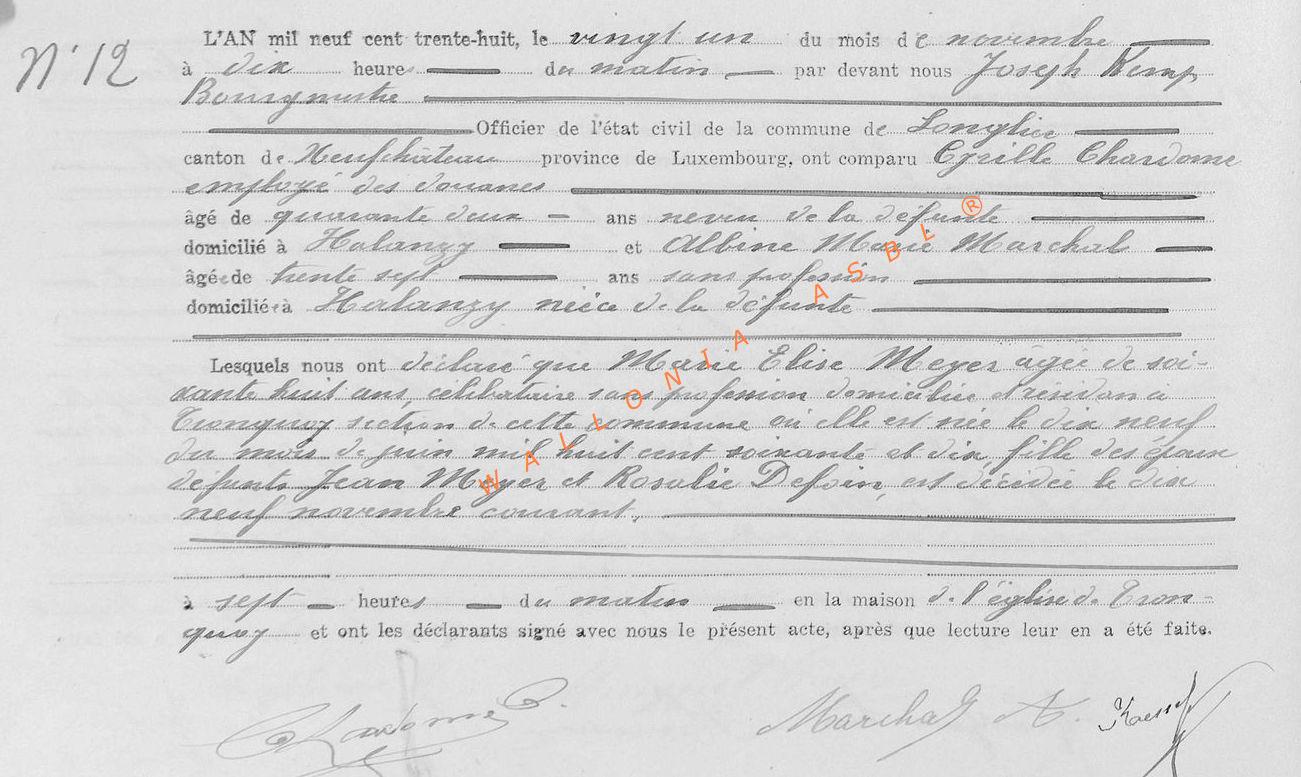 N° 12
L'AN mil neuf cent trente-huit, le vingt un du mois de novembre
à dix heures du matin par devant nous Joseph Kemp
Bourgmestre
Officier de l'état civil de la commune de Longlier
canton de Neufchâteau province de Luxembourg, ont comparu Cyrille Chardome
employé des douanes
âgé de quarante deux ans neveu de la défunte
domicilié à Halanzy et Albine Marie Marchal
âgée de trente sept ans sans profession
domiciliée à Halanzy nièce de la défunte
Lesquels nous ont déclaré que Marie Elise Meyer âgée de soi-
xante huit ans, célibataire sans profession domiciliée et résidan à
Tronquoy section de cette commune où elle est née le dix neuf
du mois de juin mil huit cent soixante et dix, fille des époux
défunts Jean Meyer et Rosalie Defoin, est décédée le dix
neuf novembre courant,
à sept heures du matin en la maison de l'église de Tron-
quoy et ont les déclarants signé avec nous le présent acte, après que lecture leur en a été faite.
Chardome C. Marchal A. Kemp
WALLONIA ASBL ®